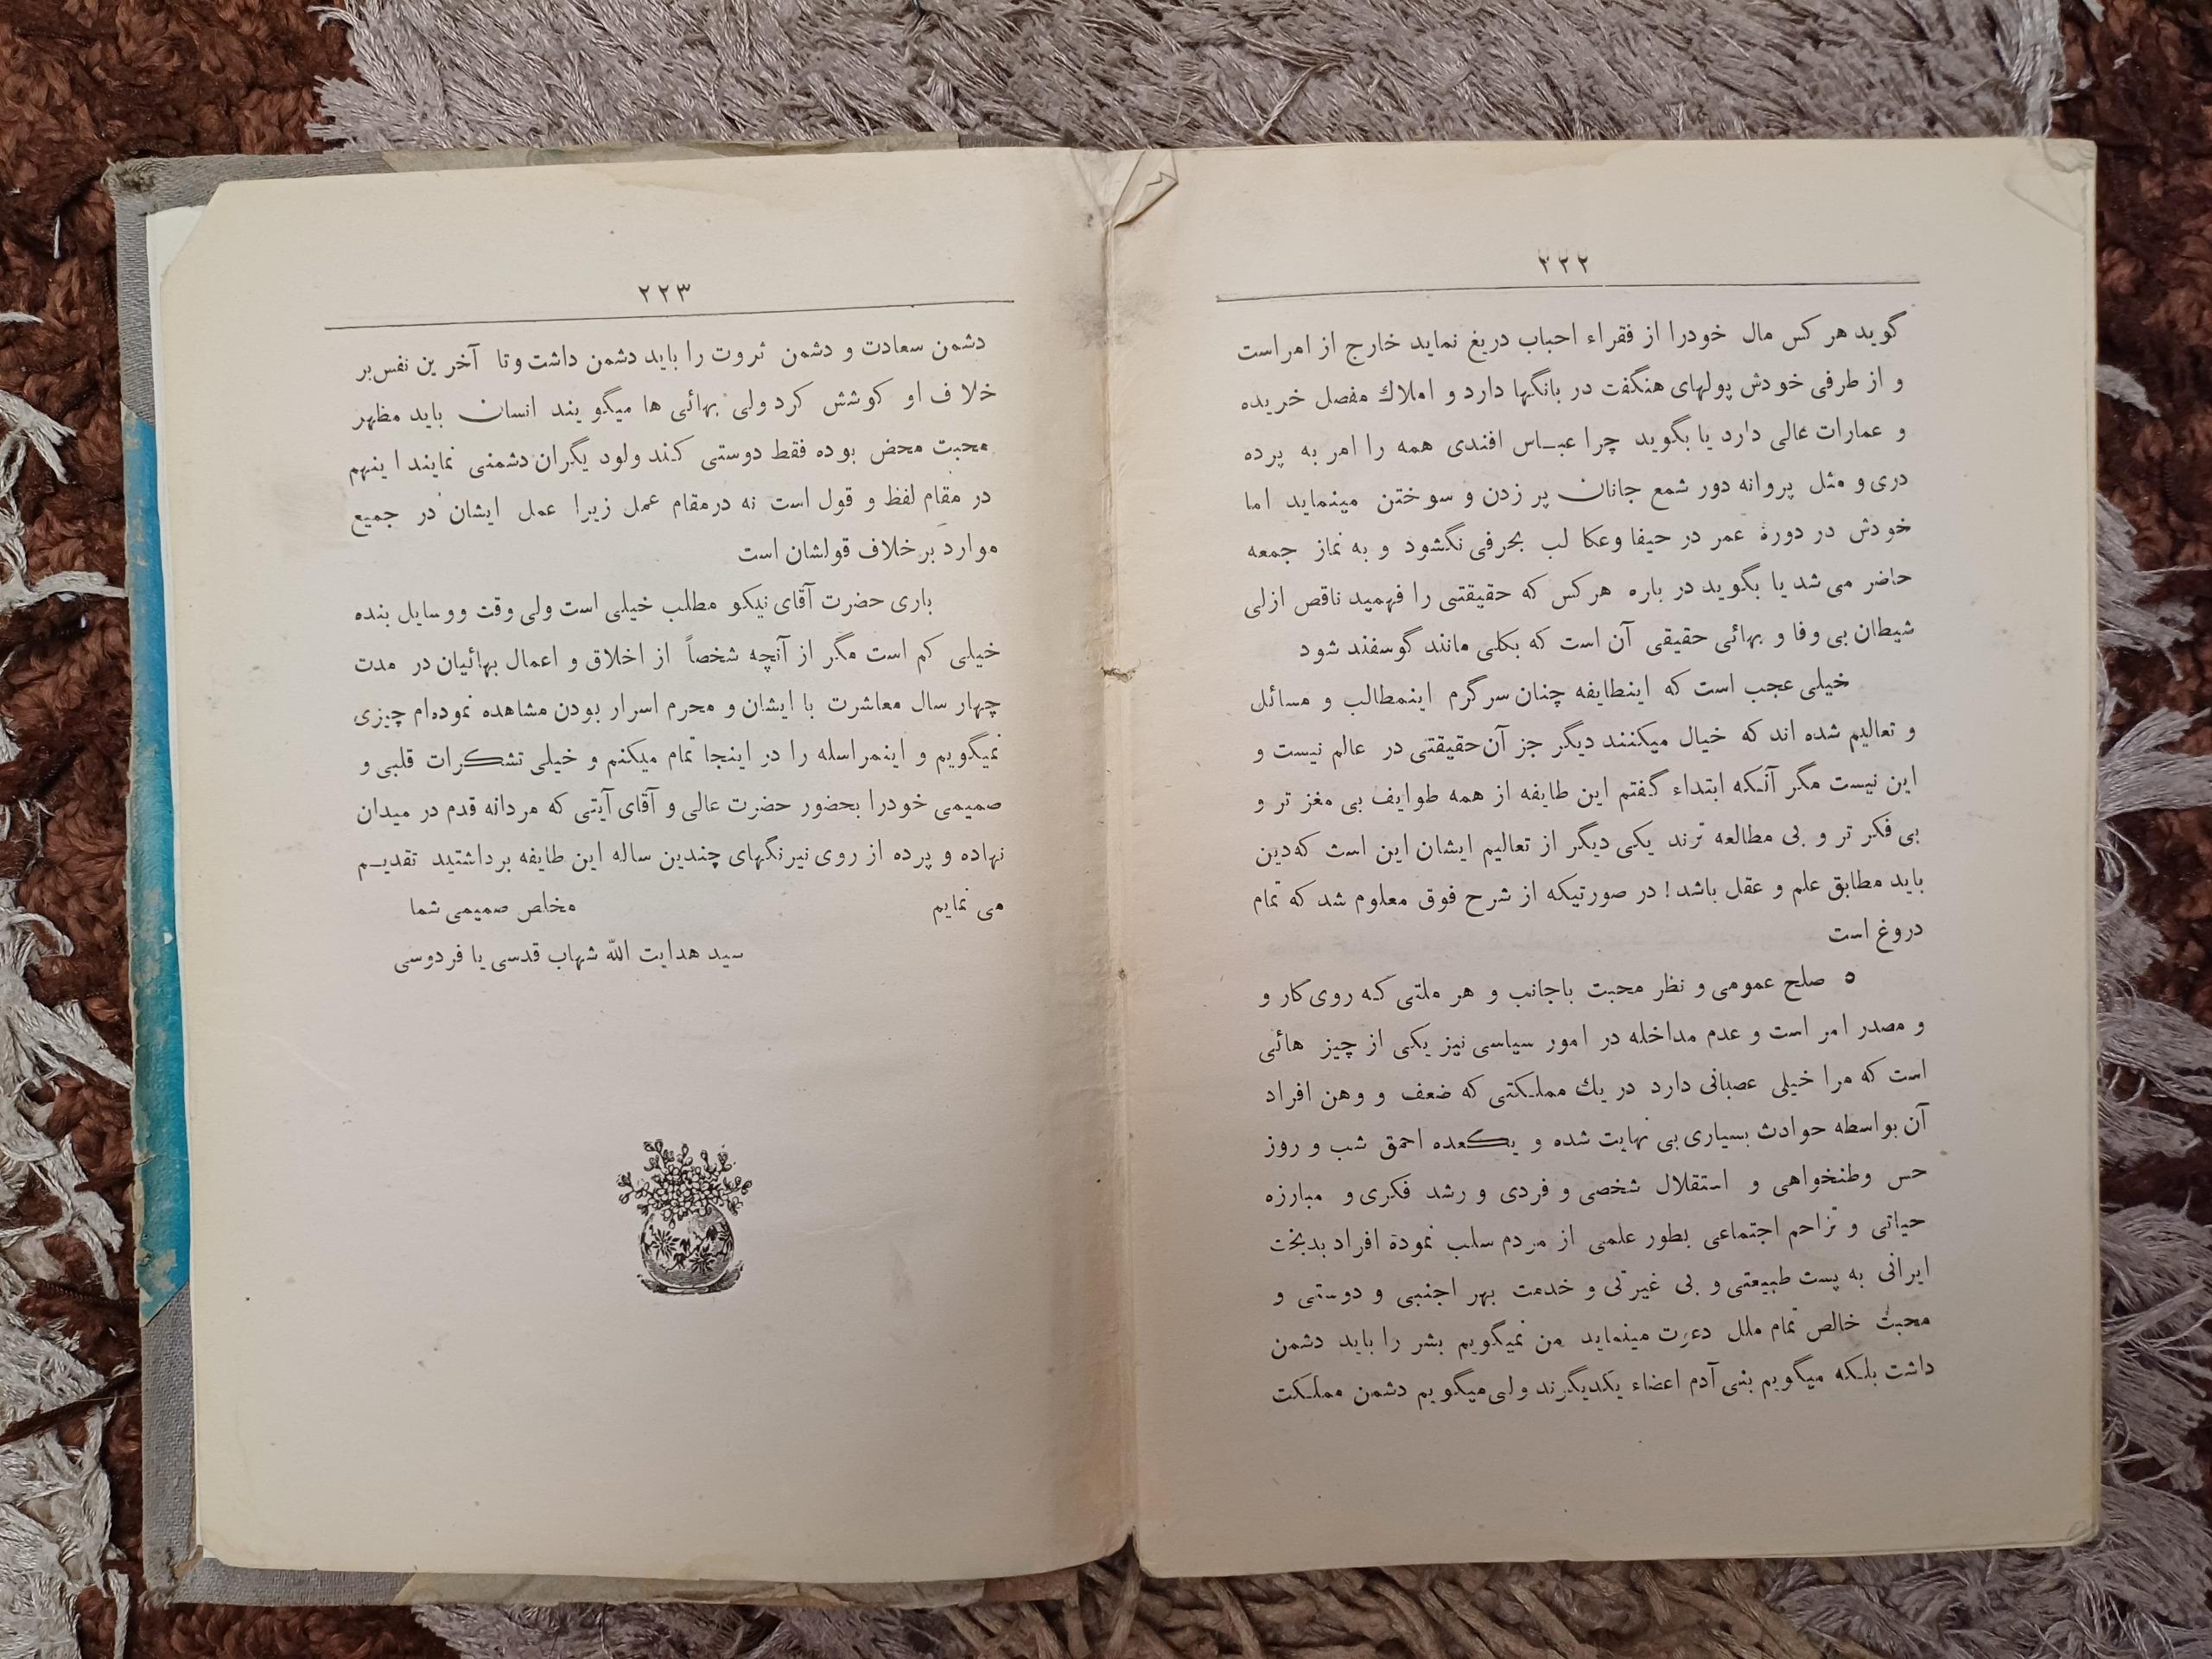 ۲۲۲
گوید هر کس مال خودرا از فقراء احباب دریغ نماید خارج از امراست
و از طرفی خودش پولهای هنگفت در بانگها دارد و املاك مفصل خریده
و عمارات عالی دارد یا بگوید چرا عباس افندی همه را امر به پرده
دری و مثل پروانه دور شمع جانان پر زدن و سوختن مینماید اما
خودش در دورهٔ عمر در حیفا وعکا لب بحرفی نگشود و به نماز جمعه
حاضر می شد یا بگوید در باره هرکس که حقیقتی را فهمید ناقص ازلی
شیطان بی وفا و بهائی حقیقی آن است که بکلی مانند گوسفند شود
خیلی عجب است که اینطایفه چنان سرگرم اینمطالب و مسائل
و تعالیم شده اند که خیال میکنند دیگر جز آن حقیقتی در عالم نیست و
این نیست مگر آنکه ابتداء گفتم این طایفه از همه طوایف بی مغز تر و
بی فکر تر و بی مطالعه ترند یکی دیگر از تعالیم ایشان این است که دین
باید مطابق علم و عقل باشد! در صورتیکه از شرح فوق معلوم شد که تمام
دروغ است
۵ صلح عمومی و نظر محبت باجانب و هر ملتی که روی کار و
و مصدر امر است و عدم مداخله در امور سیاسی نیز یکی از چیز هائی
است که مرا خیلی عصبانی دارد در یك مملکتی که ضعف و وهن افراد
آن بواسطه حوادث بسیاری بی نهایت شده و یکعده احمق شب و روز
حس وطنخواهی و استقلال شخصی و فردی و رشد فکری و مبارزه
حیاتی و تزاحم اجتماعی بطور علمی از مردم سلب نمودة افراد بدبخت
ایرانی به پست طبیعتی و بی غیرتی و خدمت بهر اجنبی و دوستی و
محبت خالص تمام ملل دعوت مینماید من نمیگویم بشر را باید دشمن
داشت بلکه میگویم بنی آدم اعضاء یکدیگرند ولی میگویم دشمن مملکت
۲۲۳
دشمن سعادت و دشمن ثروت را باید دشمن داشت وتا آخرین نفس بر
خلاف او کوشش کرد ولی بهائی ها میگویند انسان باید مظهر
محبت محض بوده فقط دوستی کند ولود یگران دشمنی نمایند اینهم
در مقام لفظ و قول است نه درمقام عمل زیرا عمل ایشان در جمیع
موارد برخلاف قولشان است
باری حضرت آقای نیکو مطلب خیلی است ولی وقت ووسایل بنده
خیلی کم است مگر از آنچه شخصاً از اخلاق و اعمال بهائیان در مدت
چهار سال معاشرت با ایشان و محرم اسرار بودن مشاهده نموده‌ام چیزی
نمیگویم و اینمراسله را در اینجا تمام میکنم و خیلی تشکرات قلبی و
صمیمی خودرا بحضور حضرت عالی و آقای آیتی که مردانه قدم در میدان
نهاده و پرده از روی نیرنگهای چندین ساله این طایفه برداشتید تقدیم
می نمایم مخلص صمیمی شما
سید هدایت الله شهاب قدسی یا فردوسی